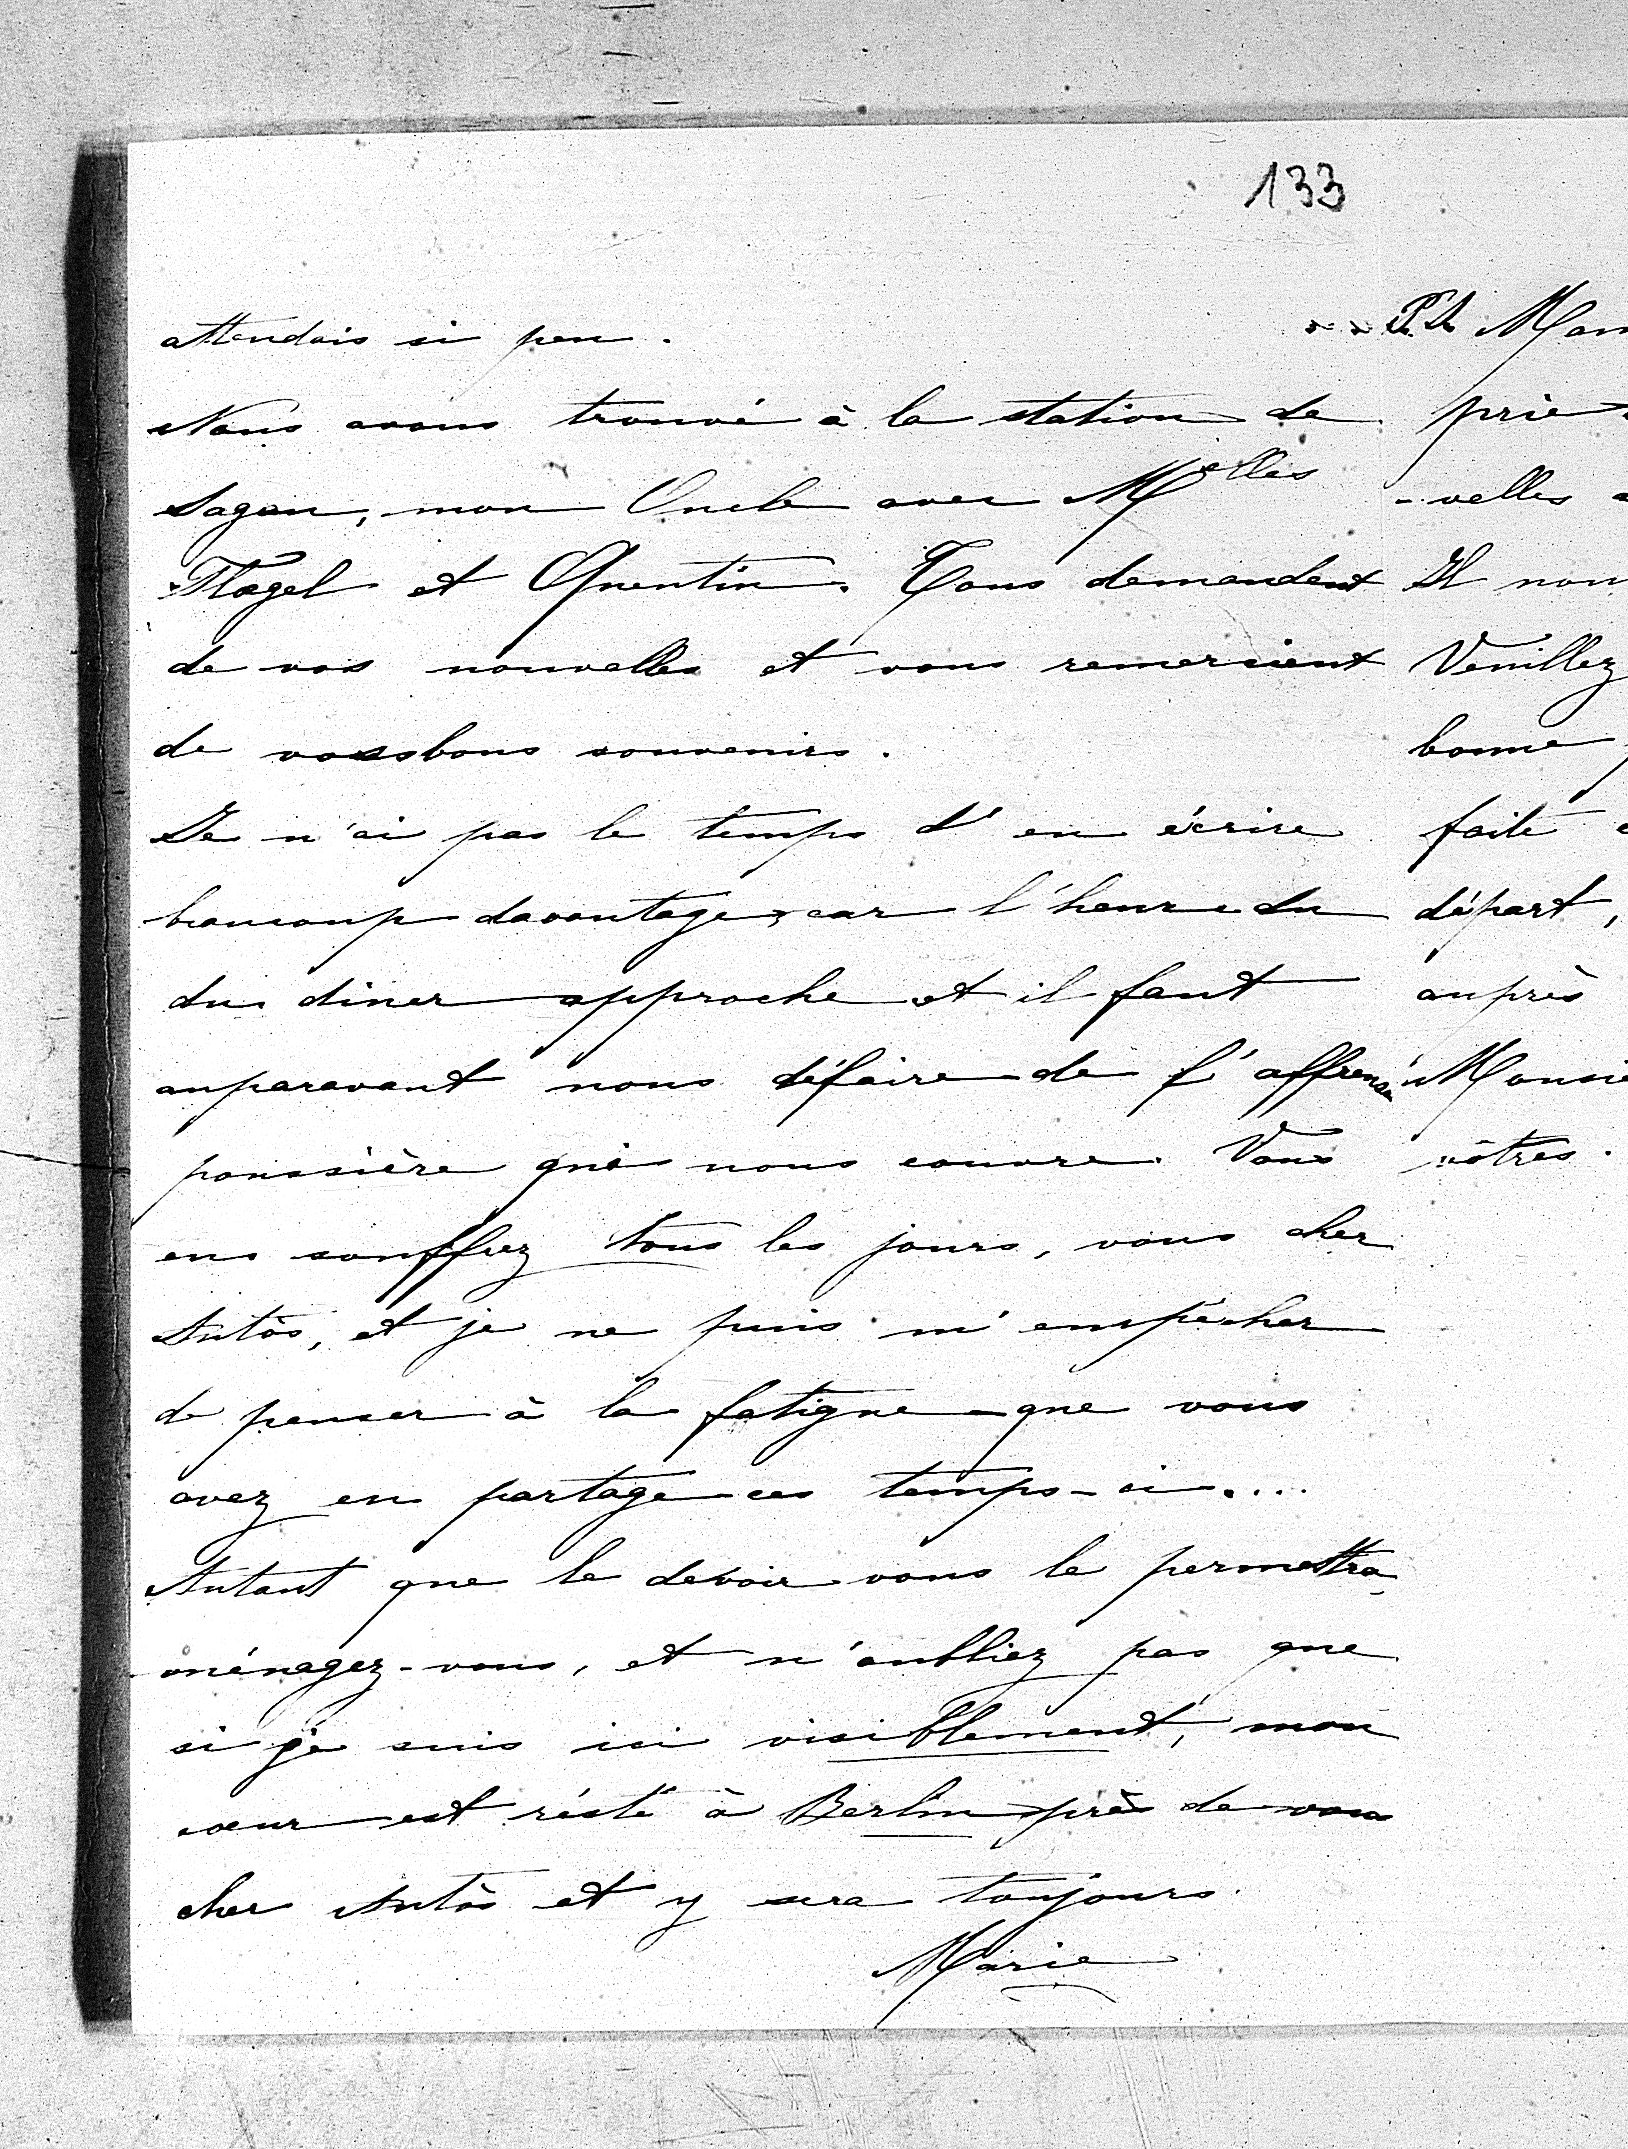 133
attendais si peu.
Nous avons trouvé à la station de
Sagan, mon Oncle avec Melles
Flögel et Quentin. Tous demandent
de vos nouvelles et vous remercient
de vos bons souvenirs.
Je n'ai pas le temps d'en écrire
beaucoup davantage, car l'heure du
du dîner approche et il faut
auparavant nous défaire de l'affreuse
poussière qui nous couvre. Vous
en souffrez tous les jours, vous cher
Antôs, et je ne puis m'empêcher
de penser à la fatigue que vous
avez en partage ces temps-ci....
Autant que le devoir vous le permettra,
ménagez-vous, et n'oubliez pas que
si je suis ici visiblement, mon
coeur est résté à Berlin près de vous
cher Antôs et y sera toujours.
Marie
Mam
prie
-velles
Il nou
Veuillez
bonne
faite
départ,
auprès
Monsie
vôtres.